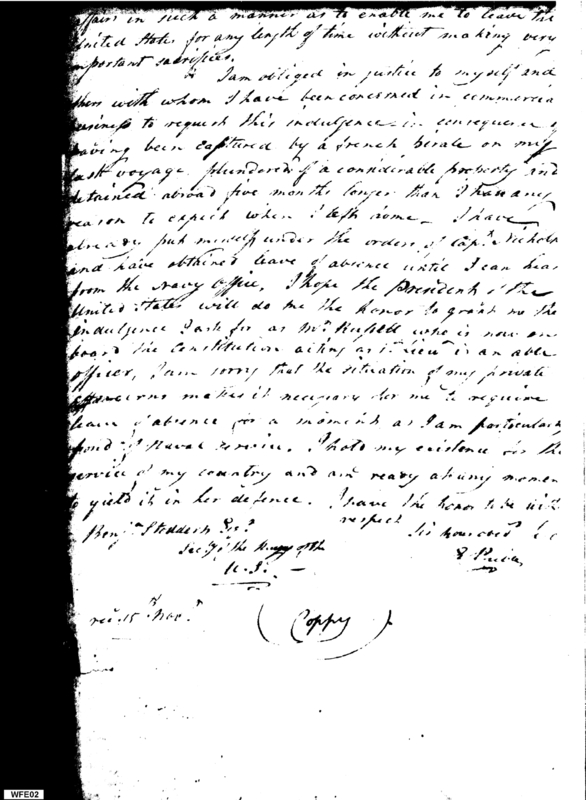 affairs in such a manner as to enable me to leave the
United States for any length of time without making very
mportant sacrifices.
I am obliged in justice to myself and
thers with whom I have been concerned in commercia
usiness to request this indulgence in consequence of
having been captured by a french pirate on my
last voyage plundered of a considerable property and
detained abroad five months longer than I had any
reason to expect when I left home - I have
already put myself under the orders of Capt. Nichols
and have obtained leave of absence until I can hear
from the Navy Office, I hope the President of the
United States will do me the honor to grant me the
indulgence I ask for as Mr. Russell who is now on
board the Constitution acting as 1st Lieut. is an able
officer, I am sorry that the situation of my private
concerns makes it necessary for me to require
leave of absence for a moment as I am particularly
fond of Naval service. I hold my existence for the
service of my country and am ready at any momen
to yield it in her defence. I have the honor to be with
respect
Benjn. Stoddert Esqr. Sir your obedt.
Secy. of the Navy of the
U.S. -
rec. 15th Nov.r
(Coppy)
WFE02